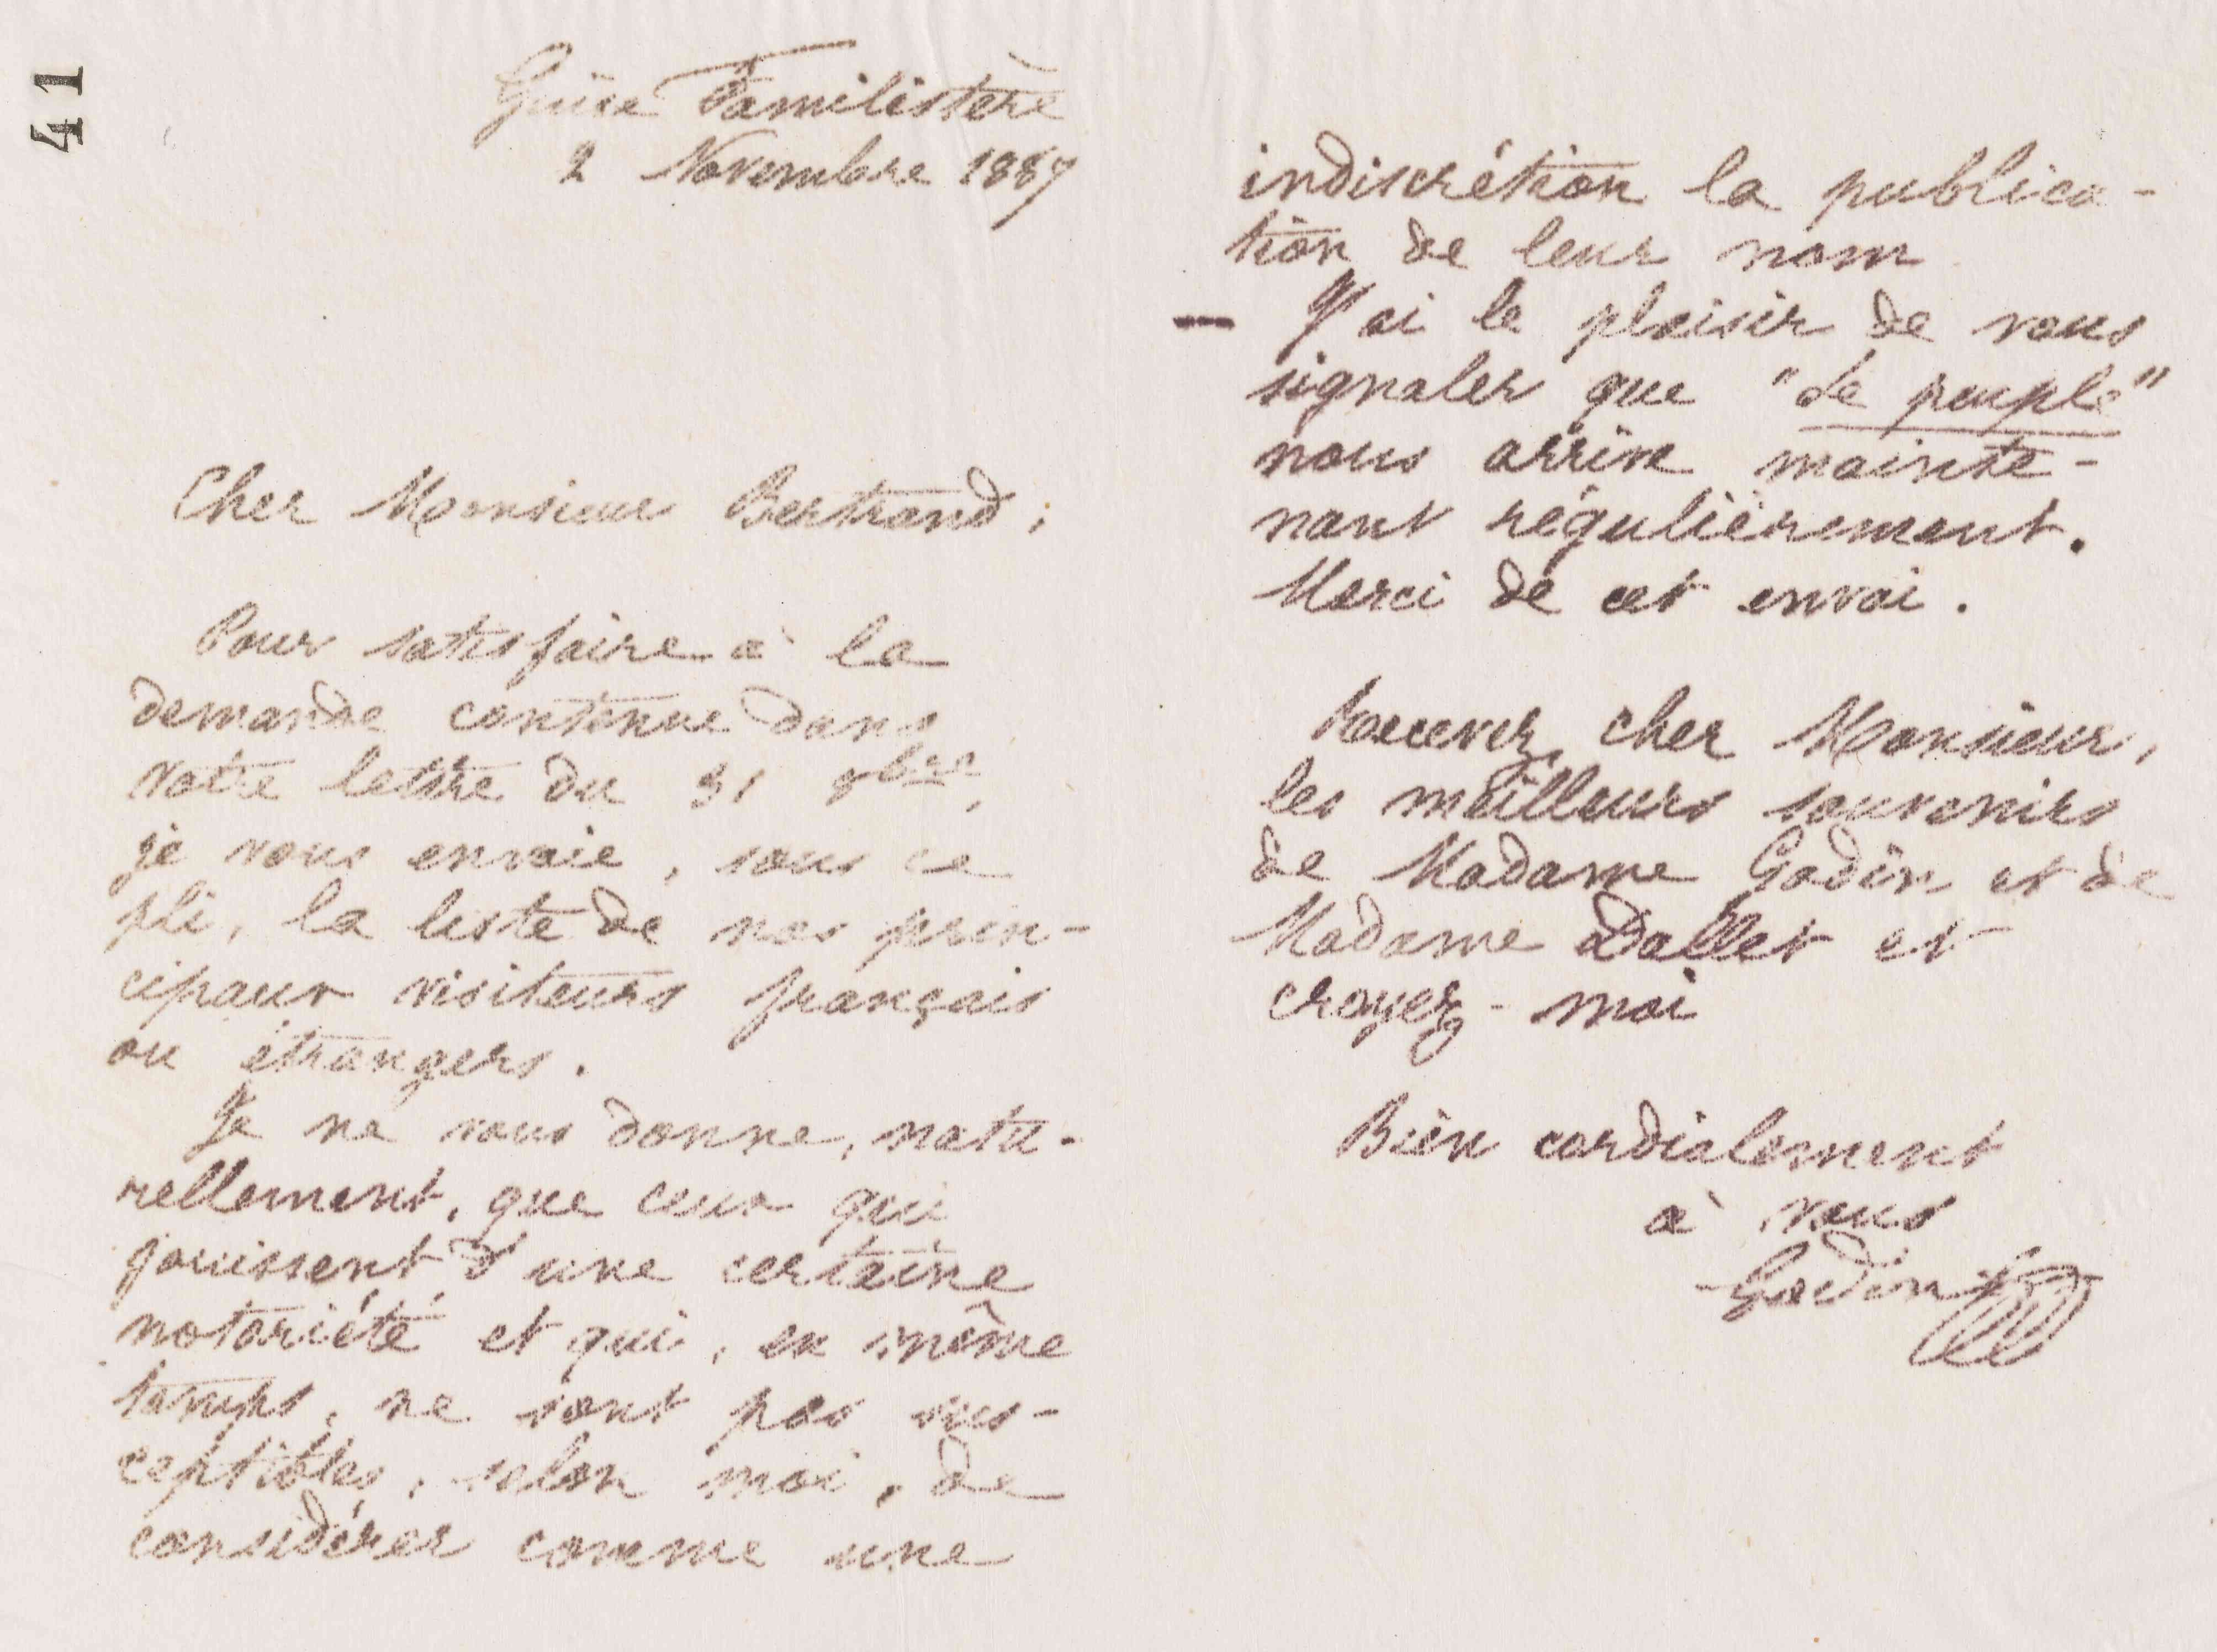 41
Guise Familistère
2 Novembre 1887
Cher Monsieur Bertrand,
Pour satisfaire à la
demande contenue dans
votre lettre du 31 8bre,
je vous envoie, sous ce
pli, la liste de nos prin-
cipaux visiteurs français
ou étrangers.
Je ne vous donne, natu-
rellement, que ceux qui
jouissent d'une certaine
notoriété et qui, en même
temps, ne sont pas sus-
ceptibles, selon moi, de
considérer comme une
indiscrétion la publica-
tion de leur nom
— J'ai le plaisir de vous
signaler que "Le peuple"
nous arrive mainte-
nant régulièrement.
Merci de cet envoi.
Recevez, cher Monsieur,
les meilleurs souvenirs
de Madame Godin et de
Madame Dallet et
croyez-moi
Bien cordialement
à vous
Godin